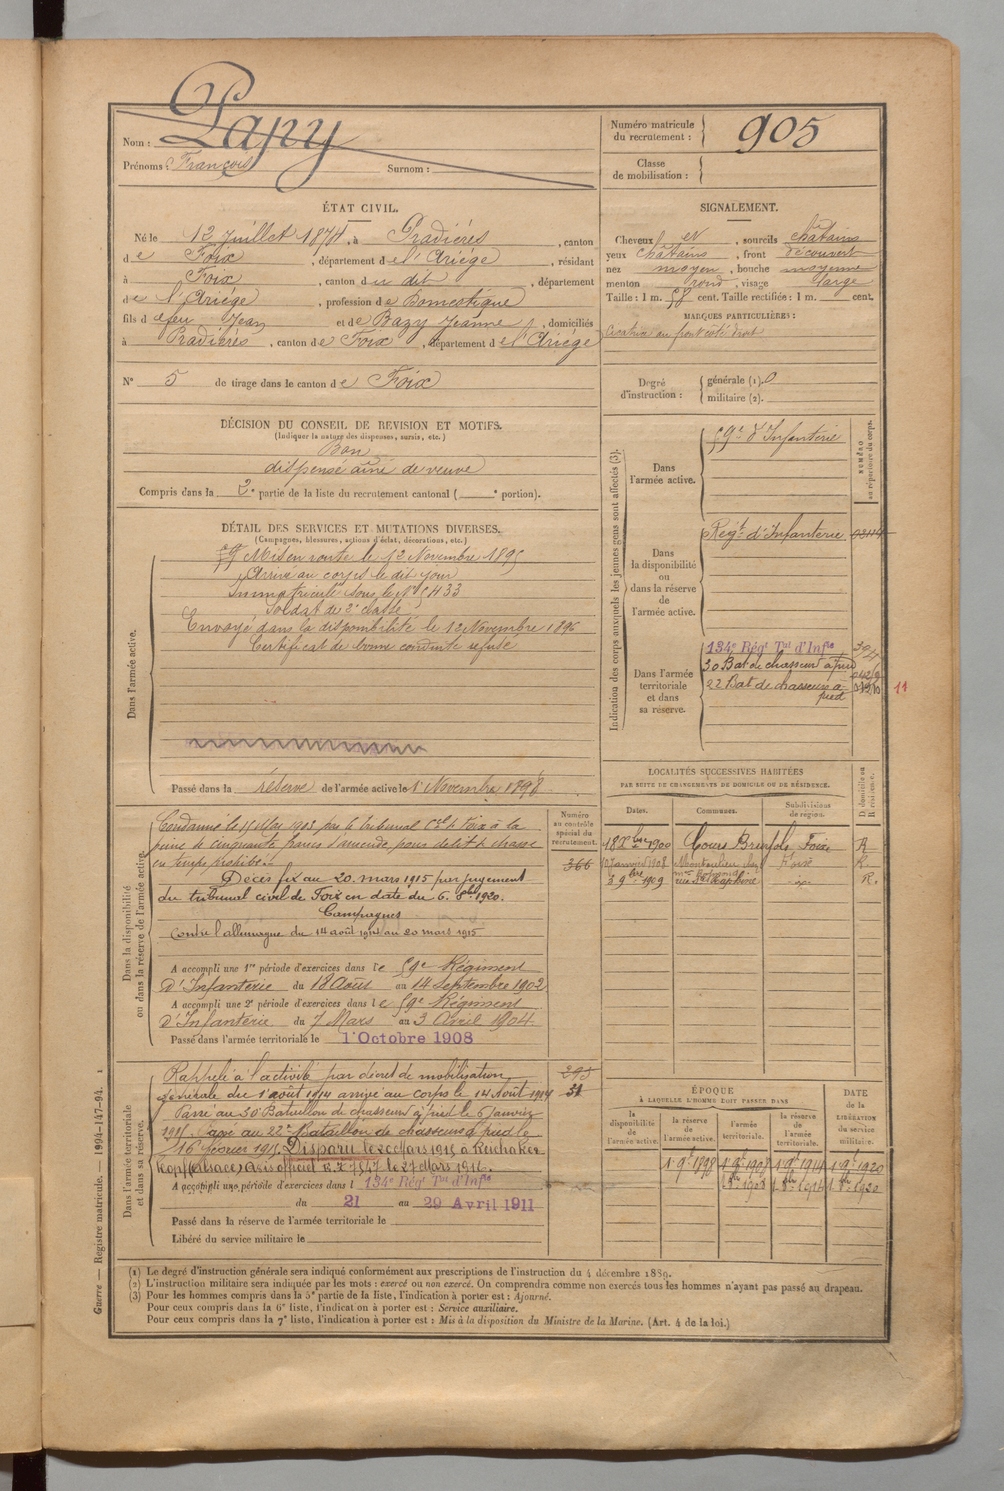 Nom : Papy
Prénoms : François Surnom :
Numéro matricule du recrutement : 905
Classe de mobilisation :
ÉTAT CIVIL.
Né le 12 Juillet 1874, à Pradières, canton
de Foix, département de l'Ariège, résidant
à Foix, canton du dit, département
de l'Ariége, profession de Domestique
fils de feu Jean et de Bazy Jeanne, domiciliés
à Pradières, canton de Foix, département de l'Ariège
N° 5 de tirage dans le canton de Foix
SIGNALEMENT.
Cheveux et, sourcils châtains
yeux châtains, front découvert
nez moyen, bouche moyenne
menton rond, visage large
Taille : 1 m. 58 cent. Taille rectifiée : 1 m. cent.
MARQUES PARTICULIÈRES :
Cicatrice au front côté droit
Degré d'instruction : générale (1). 0
militaire (2).
DÉCISION DU CONSEIL DE REVISION ET MOTIFS.
(Indiquer la nature des dispenses, sursis, etc.)
Bon
dispensé aîné de veuve
Compris dans la 2e partie de la liste du recrutement cantonal ( e portion).
DÉTAIL DES SERVICES ET MUTATIONS DIVERSES.
(Campagnes, blessures, actions d'éclat, décorations, etc.)
Dans l'armée active.
59e Mis en route le 12 Novembre 1895
Arrivé au corps le dit jour
Immatriculé sous le N° 5433
Soldat de 2e classe
Envoyé dans la disponibilité le 12 Novembre 1896
Certificat de bonne conduite refusé
Passé dans la réserve de l'armée active le 1er Novembre 1898
Indication des corps auxquels les jeunes gens sont affectés (3).
NUMÉRO au répertoire du corps.
Dans l'armée active.
59e d'Infanterie
Dans la disponibilité ou dans la réserve de l'armée active.
Régt d'Infanterie
Dans l'armée territoriale et dans sa réserve.
134e Régt Tal d'Infie
30 Bat de chasseurs à pied
22 Bat de chasseurs à pied
11
Dans la disponibilité ou dans la réserve de l'armée active.
Numéro au contrôle spécial du recrutement.
Condamné le 15 Mai 1903 par le tribunal Cel de Foix à la
peine de cinquante francs d'amende, pour délit de chasse
en temps prohibé.
366
Décès fixé au 20 mars 1915 par jugement
du tribunal civil de Foix en date du 6. 8bre 1920.
Campagnes
Contre l'allemagne du 14 août 1914 au 20 mars 1915
A accompli une 1re période d'exercices dans le 59e Régiment
d'Infanterie du 18 Août au 14 Septembre 1902
A accompli une 2e période d'exercices dans le 59e Régiment
d'Infanterie du 7 Mars au 3 Avril 1904
Passé dans l'armée territoriale le 1er Octobre 1908
LOCALITÉS SUCCESSIVES HABITÉES
PAR SUITE DE CHANGEMENTS DE DOMICILE OU DE RÉSIDENCE.
Dates. Communes. Subdivisions de région. D. domicile ou R. résidence.
18 Xbre 1900 Foix R
Janvier 1908 Montoulieu Foix R.
3 9bre 1909 R.
Dans l'armée territoriale et dans sa réserve.
Rappelé à l'activité par décret de mobilisation
générale du 1er août 1914 arrivé au corps le 14 Août 1914
Passé au 30e Bataillon de chasseurs à pied le 6 Janvier
1915. Passé au 22e Bataillon de chasseurs à pied le
16 février 1915. Disparu le 20 Mars 1915 à Reichaker
Kopf (Alsace) Avis officiel le 27 Mars 1916.
A accompli une période d'exercices dans l 134e Régt Tal d'Infie
du 21 au 29 Avril 1911
Passé dans la réserve de l'armée territoriale le
Libéré du service militaire le
ÉPOQUE
À LAQUELLE L'HOMME DOIT PASSER DANS
la disponibilité de l'armée active. la réserve de l'armée active. l'armée territoriale. la réserve de l'armée territoriale. DATE de la LIBÉRATION du service militaire.
1er 9bre 1898 1er 9bre 1908 1er 9bre 1914 1er 9bre 1920
(1) Le degré d'instruction générale sera indiqué conformément aux prescriptions de l'instruction du 4 décembre 1889.
(2) L'instruction militaire sera indiquée par les mots : exercé ou non exercé. On comprendra comme non exercés tous les hommes n'ayant pas passé au drapeau.
(3) Pour les hommes compris dans la 5e partie de la liste, l'indication à porter est : Ajourné.
Pour ceux compris dans la 6e liste, l'indication à porter est : Service auxiliaire.
Pour ceux compris dans la 7e liste, l'indication à porter est : Mis à la disposition du Ministre de la Marine. (Art. 4 de la loi.)
Guerre — Registre matricule. — 1994-147-94. 1